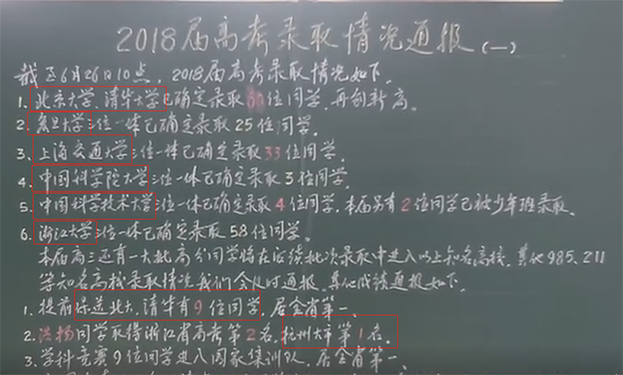 2018届高考录取情况通报(一)
截至6月26日10点，2018届高考录取情况如下。
1、北京大学、清华大学已确定录取位同学，再创新高。
2、复旦大学三位一体已确定录取25位同学。
3、上海交通大学三位一体已确定录取33位同学。
4、中国科学院大学三位一体已确定录取3位同学。
5、中国科学技术大学三位一体已确定录取4位同学，本届另有2位同学已被少年班录取。
6、浙江大学三位一体已确定录取58位同学。
本届高三还有一大批高分同学将在后续批次录取中进入以上知名高校，其他985、211
等知名高校录取情况我们会及时通报，其他成绩通报如下。
1、提前保送北大、清华有9位同学，居全省第一、
2、洪扬同学取得浙江省高考第2名，杭州大市第1名。
3、学科竞赛9位同学进入国家集训队，居全省第一、